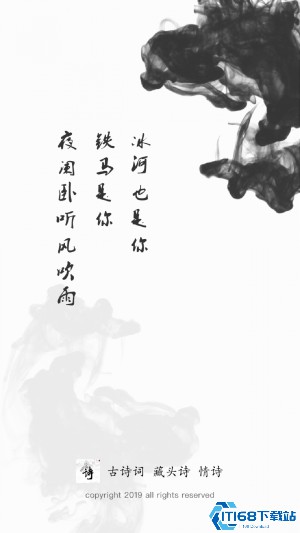 夜阑卧听风吹雨
铁马是你
冰河也是你
诗
古诗词 藏头诗 情诗
copyright 2019 all rights reserved
IT168下载站